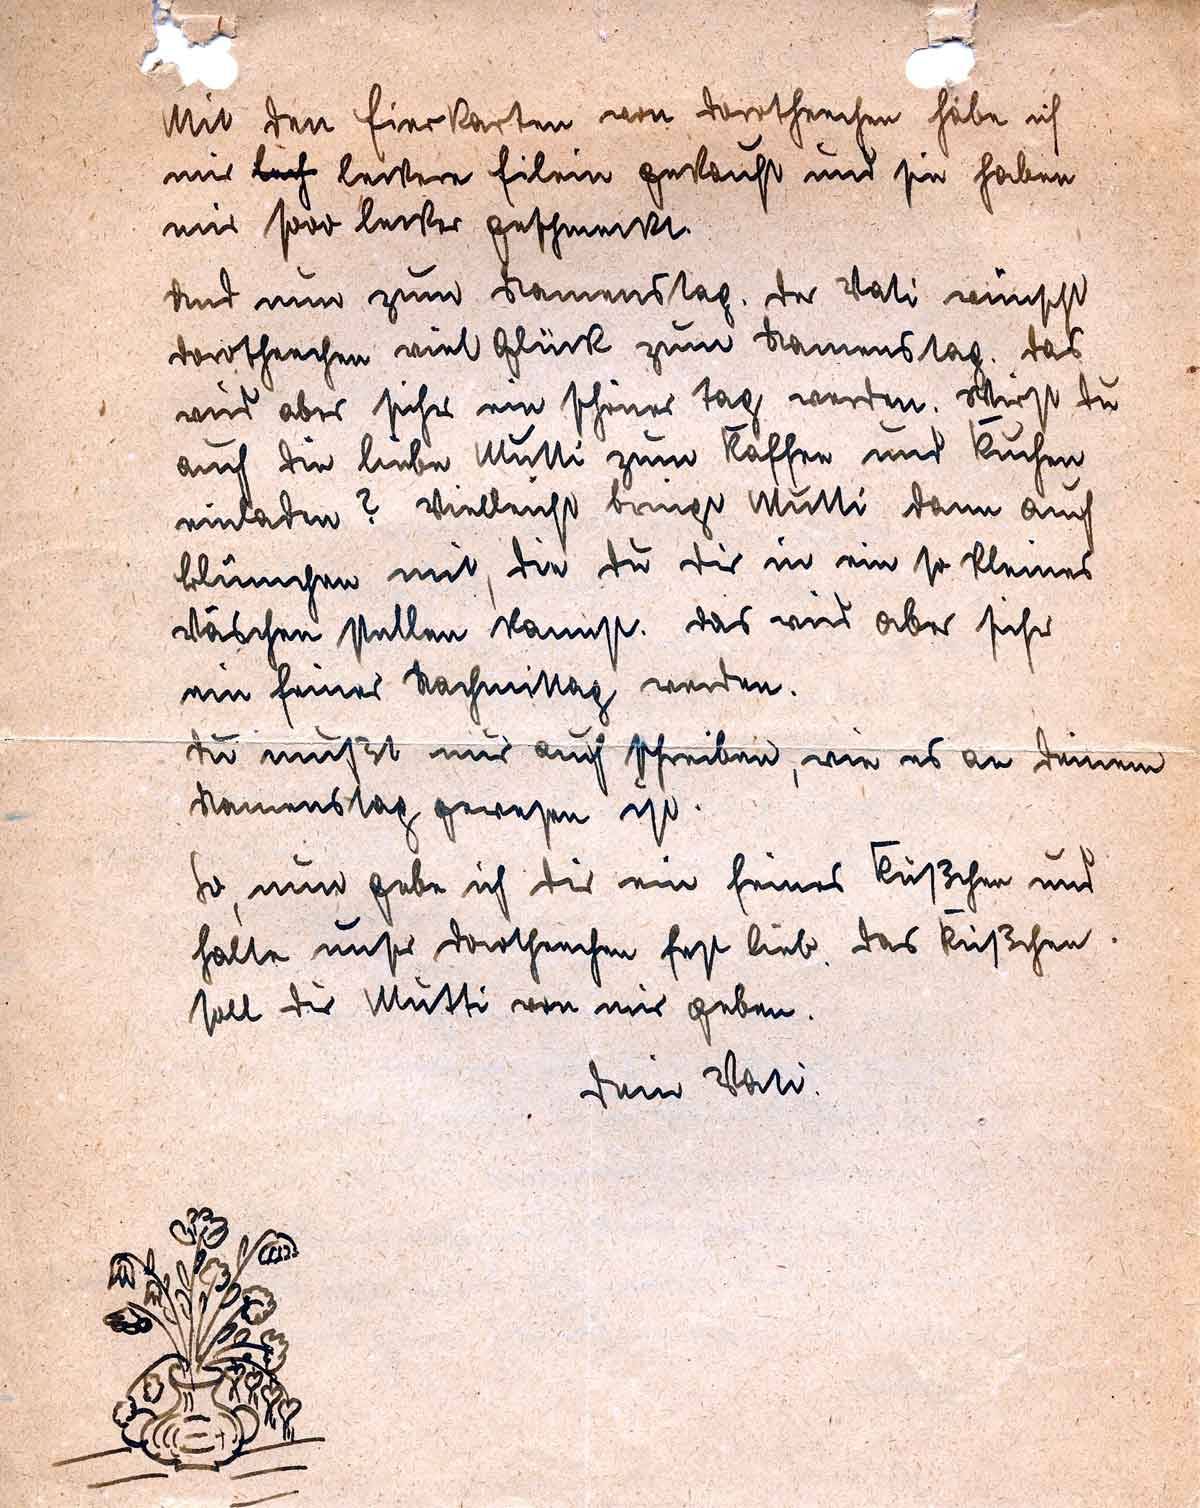 Mit den Eierkarten von Dorotheechen habe ich
mir leckere Eilein gekauft und sie haben
mir sooo lecker geschmeckt.
Und nun zum Namenstag. Der Vati wünscht
Dorotheechen viel Glück zum Namenstag. Das
wird aber sicher ein schöner Tag werden. Wirst Du
auch die liebe Mutti zum Kaffee und Kuchen
einladen? Vielleicht bringt Mutti dann auch
Blümchen mit, die Du Dir in ein so kleines
Väschen stellen kannst. Das wird aber sicher
ein feiner Nachmittag werden.
Du mußt mir auch schreiben, wie es an Deinem
Namenstag gewesen ist.
So, nun gebe ich Dir ein feines Küßchen und
halte unser Dorotheechen fest lieb. Das Küßchen
soll Dir Mutti von mir geben.
Dein Vati.